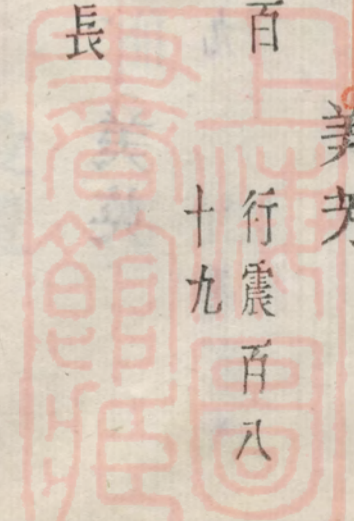 百
行震百八
十九
長
上海圖
書館藏